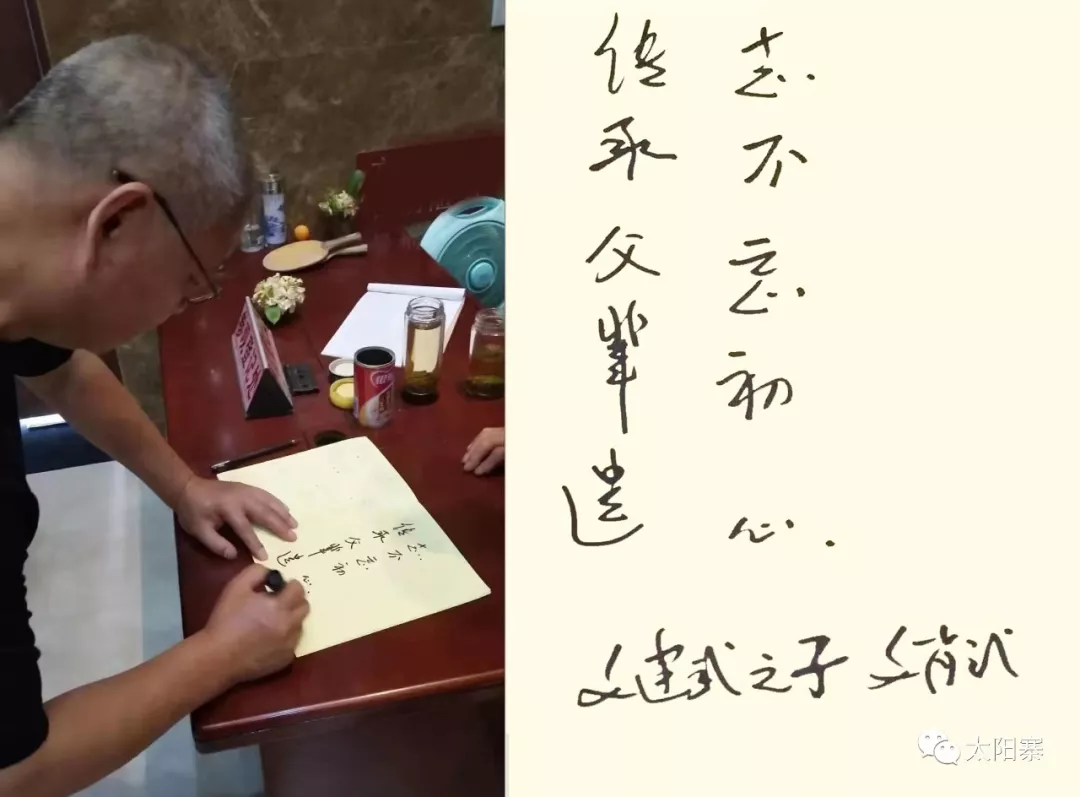 传承父辈遗
志不忘初心.
文建武之子 文
太阳寨